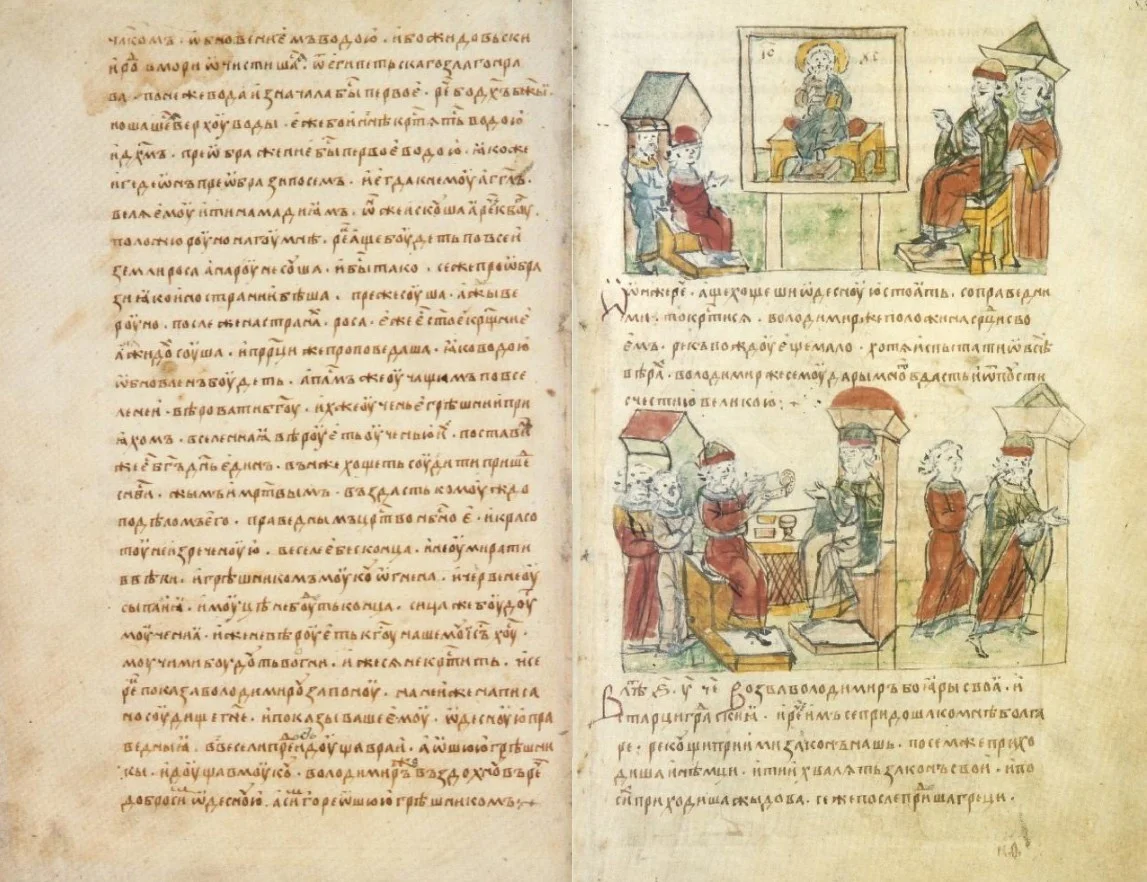 чл҃комъ · ѡбновение мъ водою · ибо жидовьски
и род в мори ѡчистиша сѧ ѿ египетьскаго злаго нра
ва · понеже вода изначала бы первое · рече бо дх҃ъ бж҃ьи
ношаше верхоу воды · еже бо и нн҃ѣ кртѧтьс водою
и дх҃мъ · преѡбражение бы первое водою · ꙗко же
и гедеѡнъ преѡбрази посемъ · и егда к немоу агг҃лъ ·
велѧ емоу ити на мадиамъ · ѡн же искоуша рече к бг҃оу ·
положю роуно на гоумнѣ · рече аще боудеть по всеи
земли роса а на роуне соуша · и бы тако · се же преѡбра
зи ꙗко иностранни бѣша · преже соуша · а жыве
роуно · послѣ же на странах роса · еже есть с҃тое крщн҃ие
а на жидох соуша · и прр҃ци же проповедаша · ꙗко водою
ѡбновленъ боудеть · апл҃мъ же оучащимъ по все
ленеи · вѣровати бг҃оу · ихже оученье грѣшнии при
ꙗхом · вселеннаꙗ вѣроуеть оученью их · поставил
же е бг҃ъ дн҃ь единъ · в он же хощеть соудити прише
с нб҃си · жывымъ и мртвым · въздасть комоуждо
по дѣломъ его · праведнымъ црт҃во нбн҃ое · и красо
тоу неизреченоую · веселе бес конца · и не оумирати
в вѣки · и грѣшникомъ моукоу ѡгнена · и черве неоу
сыпаꙗи · и моуцѣ не боуть конца · сица же боудоу
моучениꙗ · иже не вѣроуеть к г҃оу нашемоу ис҃ъ х҃оу ·
моучими боудоуть в огни · иже сѧ не кртить · и се
рек показа володимироу запоноу · на неи же написа
но соудище гн҃е · и показываше емоу · ѡдесноую пра
ведныꙗ · в веселии преидоуща в раи · а ѡшюю грѣшни
кы · идоуща в моукоу · володимиръ же въздохноувъ рече
добро сим ѡдесноую · а сим горе ѡшюю грѣшником
ІС ХС
ѡн же рече · аще хощеши ѡдесноую стоꙗть · с праведни
ми · то кртисѧ · володимир же положи на срцѣ сво
емъ · рекъ пождоу еще мало · хотѧ испытати ѡ всѣх
вѣрах · володимир же семоу дары многы вдасть и ѿпусти
с честию великою :
В лѣт · Возва володимиръ боꙗры своꙗ · и
старци градскиꙗ · и рече имъ се придоша ко мнѣ болга
ре · рекоущи приими законъ нашь · посем же прихо
диша и нѣмци · и ти и хвалꙗть законъ свои · и по
сих приходиша жыдова · се же послѣ придоша греци ·